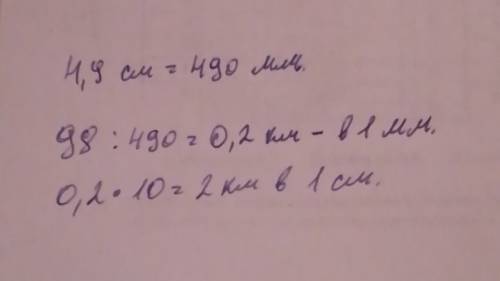 4,9 см = 490 мм.
98 : 490 = 0,2 км - в 1 мм.
0,2 • 10 = 2 км в 1 см.